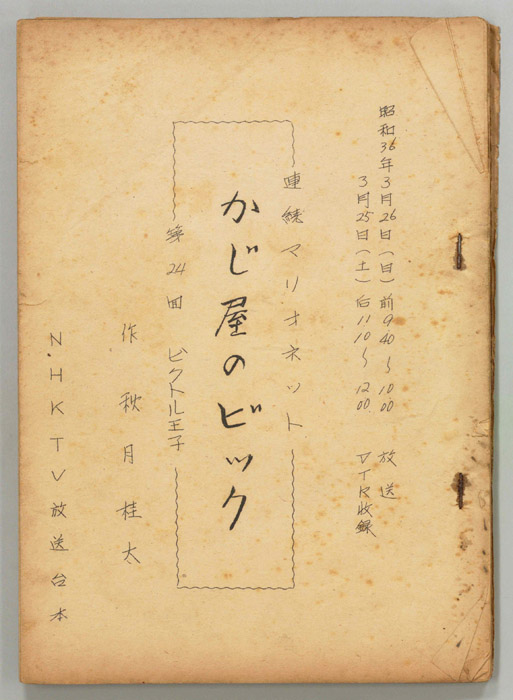 昭和36年3月26日(日)前9.40〜10.00 放送
3月25日(土)后11.10〜12.00 VTR収録
連続マリオネット
かじ屋のビック
第24回 ビクトル王子
作 秋月桂太
NHKTV放送台本